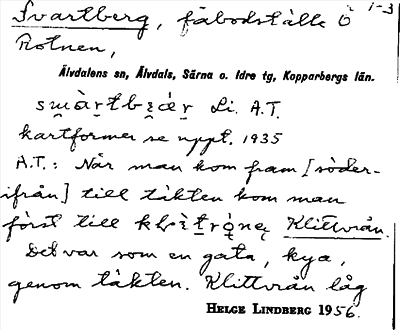 Svartberg, fäbodställe Ö 1-3
Rotnen,
Älvdalens sn, Älvdals, Särna o. Idre tg, Kopparbergs län.
Li. A.T.
kartformer se uppt. 1935
A.T.: När man kom fram [söder-
ifrån] till täkten kom man
först till Klittvrån.
Det var som en gata, kya,
genom täkten. Klittvrån låg
HELGE LINDBERG 1956.